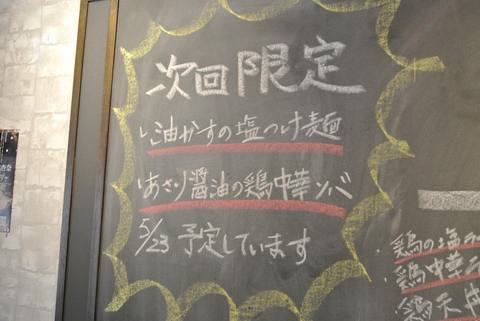 次回限定
い油かすの塩つけ麺
はあさり醤油の鶏中華ソバ
5/23 予定しています
・鶏の塩ラー
・鶏中華ラ
・鶏天